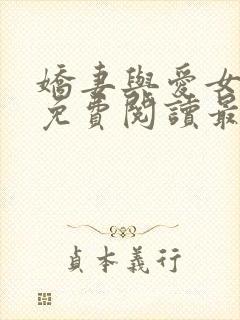 嬌妻與愛女
免費閱讀最
貞本義行